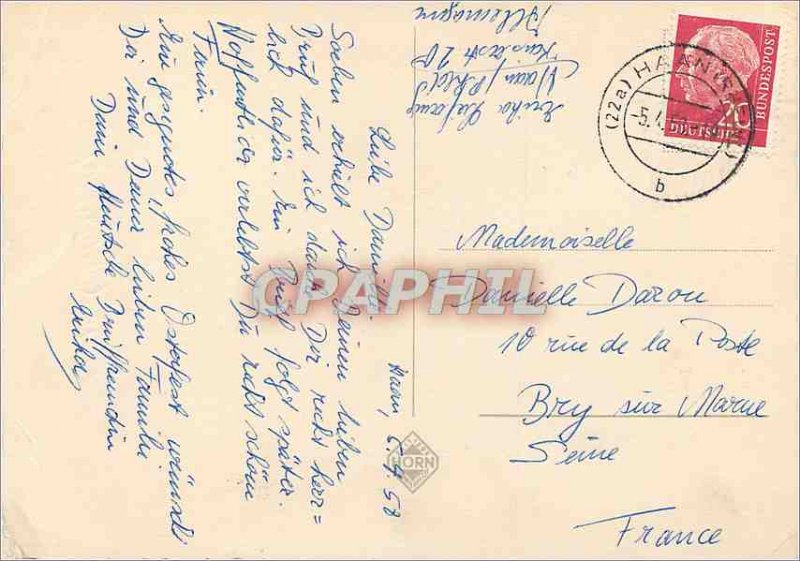 Haan, 5.4.58
Liebe Danielle!
Soeben erhielt ich Deinen lieben
Brief und ich danke Dir recht herz=
lich dafür. Ein Brief folgt später.
Hoffentlich verlebtest Du recht schöne
Ferien.
Ein gesegnetes, frohes Osterfest wünscht
Dir und Deiner lieben Familie
Deine deutsche Brieffreundin
Erika
Erika
Haan/Rhld
20
Allemagne
(22a) HAAN
-5.4.
b
20
DEUTSCHE
BUNDESPOST
Mademoiselle
Danielle Darou
10 rue de la Poste
Bry sur Marne
Seine
France
HORN
CPAPHIL